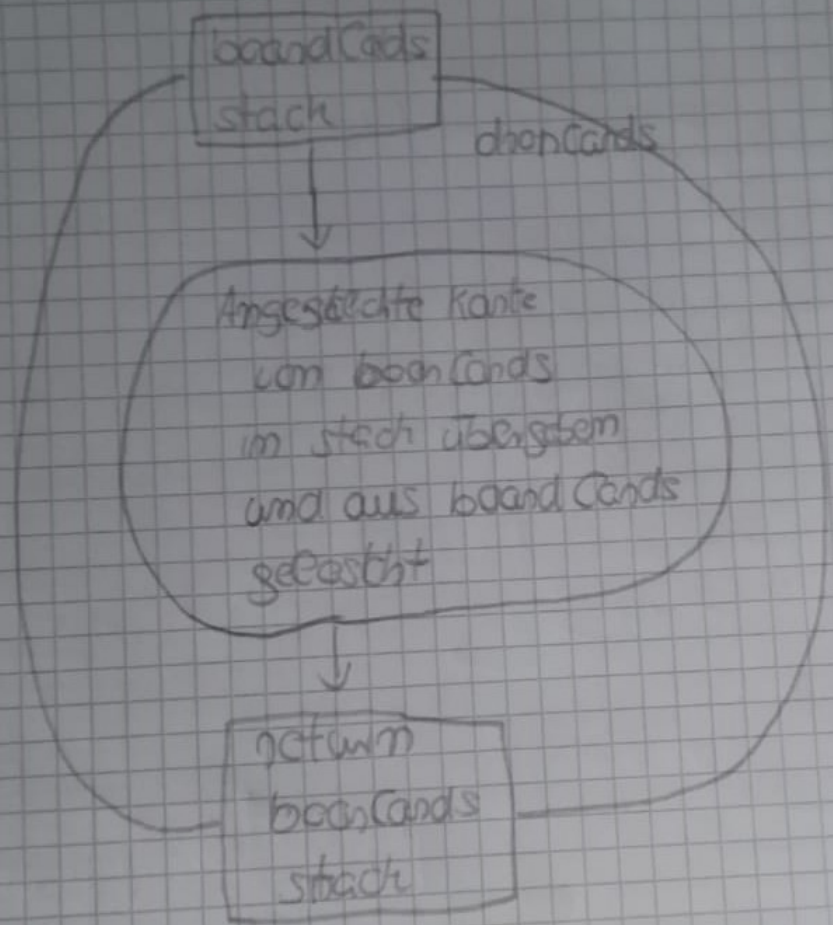 boardCards
stack
chonCards
Angesteckte Karte
von boarCards
in stack übergeben
und aus boardCards
geloscht
return
boarCards
stack